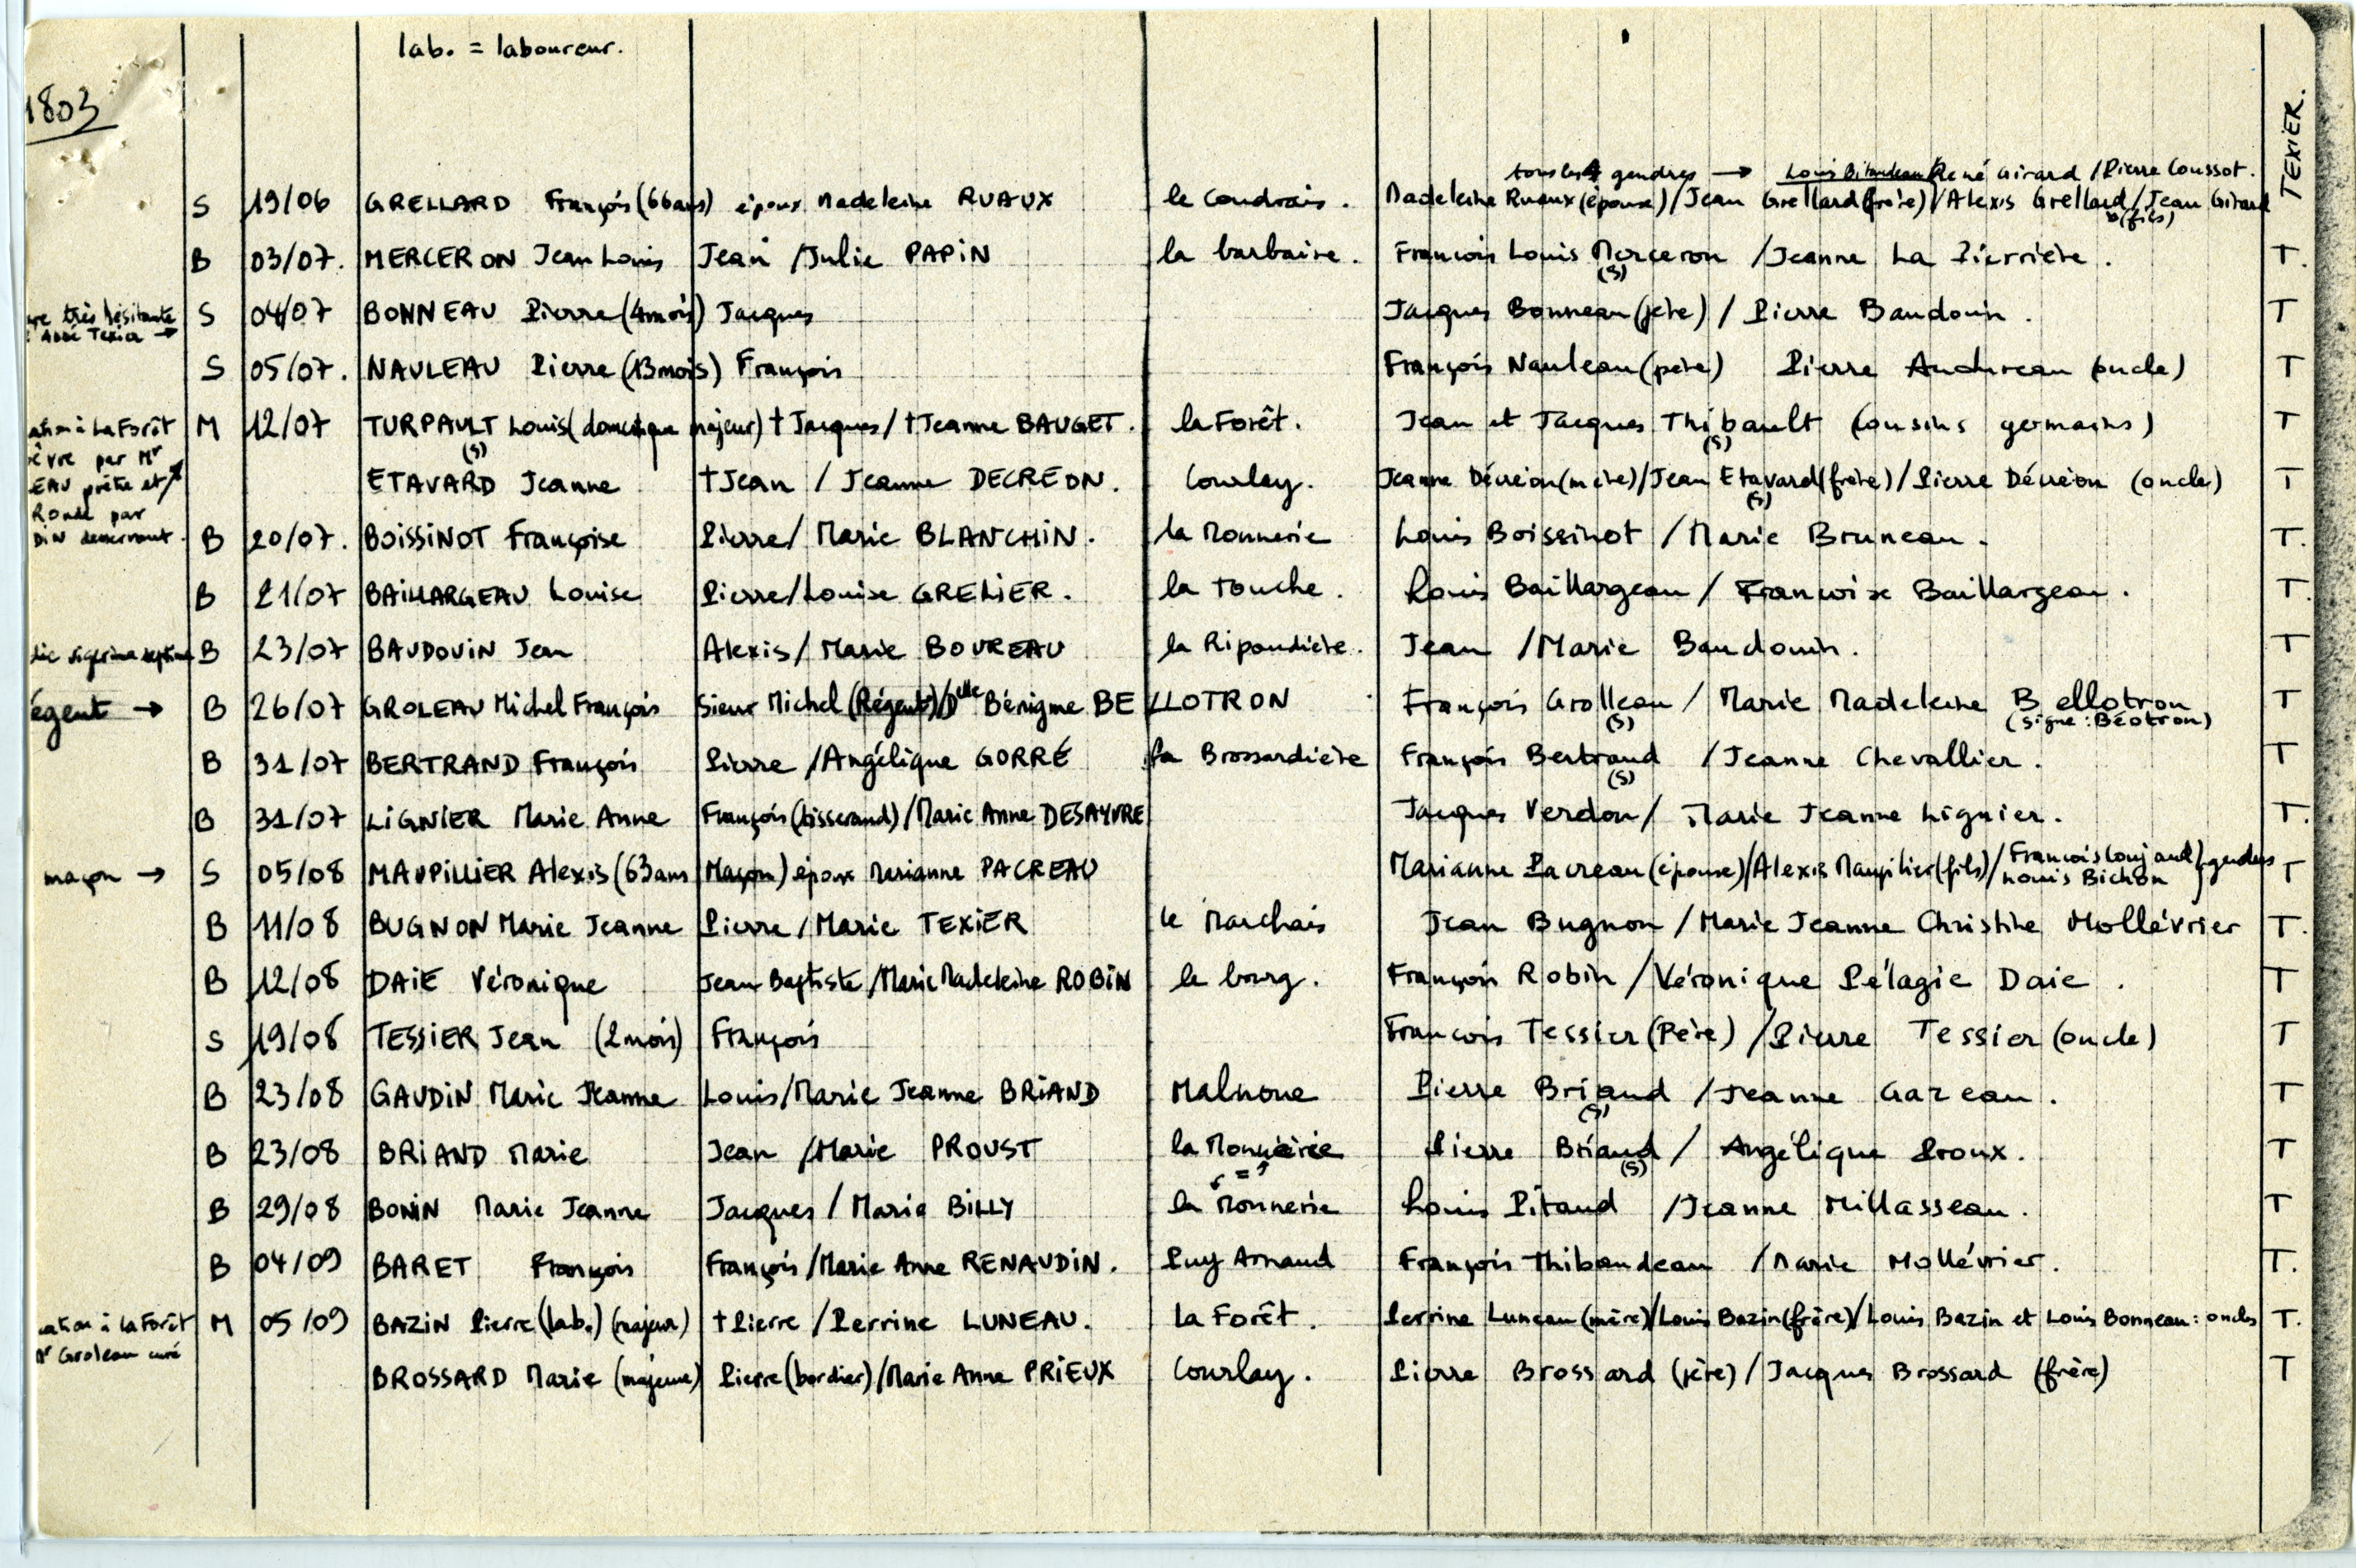 lab. = laboureur.
1803
TEXIER.
tous les 4 gendres → Louis Bitaudeau/René Girard /Pierre Coussot.
S 19/06 GRELLARD François (66ans) époux Madeleine RUAUX le Coudrais. Madeleine Ruaux (épouse) /Jean Grellard (frère) /Alexis Grellard / Jean Girard
(fils)
B 03/07. MERCERON Jean Louis Jean /Julie PAPIN la barbaire. François Louis Merceron /Jeanne La Pierrière. T.
(S)
très hésitante S 04/07 BONNEAU Pierre (4mois) Jacques Jacques Bonneau (père) / Pierre Baudouin. T
Abbé Texier →
S 05/07. NAULEAU Pierre (13mois) François François Nauleau (père) Pierre Audureau (oncle) T
à La Forêt M 12/07 TURPAULT Louis (domestique majeur) † Jacques / † Jeanne BAUGET. la Forêt. Jean et Jacques Thibault (cousins germains) T
(S) (S)
èvre par Mr
EAU prêtre et ETAVARD Jeanne † Jean / Jeanne DECREON. Courlay. Jeanne Décréon (mère) /Jean Etavard (frère) / Pierre Décréon (oncle) T
(S)
Ronde par
DIN desservant. B 20/07. BOISSINOT Françoise Pierre / Marie BLANCHIN. la Monnerie Louis Boissinot / Marie Bruneau. T.
B 21/07 BAILLARGEAU Louise Pierre/Louise GRELIER. la Touche. Louis Baillargeau / Françoise Baillargeau. T.
B 23/07 BAUDOUIN Jean Alexis / Marie BOUREAU la Ripaudière. Jean /Marie Baudouin. T
égent → B 26/07 GROLEAU Michel François Sieur Michel (Régent)/Delle Bénigme BELLOTRON François Grolleau / Marie Madeleine Bellotron T
(S) (signe : Béotron)
B 31/07 BERTRAND François Pierre /Angélique GORRÉ la Brossardière François Bertrand /Jeanne Chevallier. T
(S)
B 31/07 LIGNIER Marie Anne François (tisserand) /Marie Anne DESAYVRE Jacques Verdon / Marie Jeanne Lignier. T.
maçon → S 05/08 MAUPILLIER Alexis (63ans Maçon) époux Marianne PACREAU Marianne Pacreau (épouse) /Alexis Maupilier (fils) / François Coujaud } gendres T
Louis Bichon
B 11/08 BUGNON Marie Jeanne Pierre / Marie TEXIER le Marchais Jean Bugnon / Marie Jeanne Christine Mollévrier T.
B 12/08 DAIE Véronique Jean Baptiste /Marie Madeleine ROBIN le bourg. François Robin /Véronique Pélagie Daie. T
S 19/08 TESSIER Jean (2mois) François François Tessier (Père) /Pierre Tessier (oncle) T
B 23/08 GAUDIN Marie Jeanne Louis/Marie Jeanne BRIAND Malnoue Pierre Briand /Jeanne Gazeau. T
(S)
B 23/08 BRIAND Marie Jean /Marie PROUST la Monnerie Pierre Briand / Angélique Proux. T
= (S)
B 29/08 BONIN Marie Jeanne Jacques / Marie BILLY la Monnerie Louis Pitaud /Jeanne Millasseau. T
B 04/09 BARET François François /Marie Anne RENAUDIN. Puy Arnaud François Thibaudeau /Marie Mollévrier. T.
à La Forêt M 05/09 BAZIN Pierre (lab.) (majeur) † Pierre / Perrine LUNEAU. la Forêt. Perrine Luneau (mère)/Louis Bazin (frère)/Louis Bazin et Louis Bonneau : oncles T.
Mr Groleau curé
BROSSARD Marie (majeure) Pierre (bordier) /Marie Anne PRIEUX Courlay. Pierre Brossard (père) / Jacques Brossard (frère) T